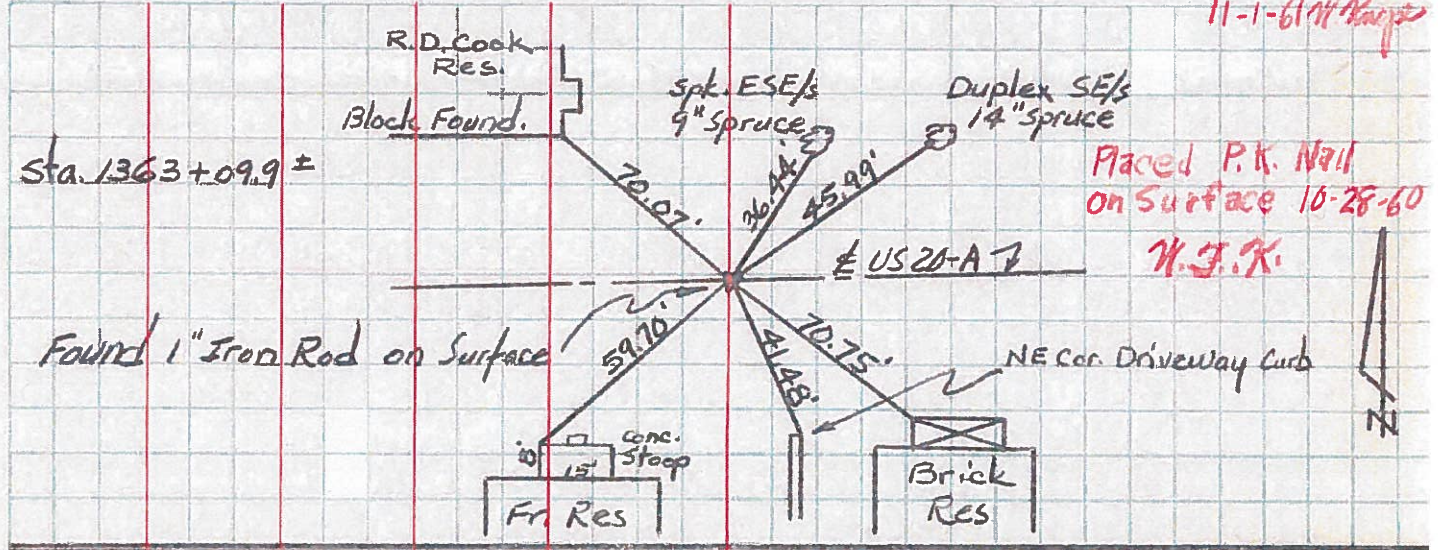 11-1-61
R.D. Cook
Res.
Block Found.
Spk. ESE/s
9" Spruce
Duplex SE/s
14" Spruce
Sta. 1363+09.9 ±
Placed P.K. Nail
on Surface 10-28-60
N.F.K.
70.07'
36.44'
45.99'
℄ US 20-A
Found 1" Iron Rod on Surface
59.70'
41.48'
70.75'
NE Cor. Driveway Curb
N
8'
15'
Conc.
Stoop
Fr. Res
Brick
Res